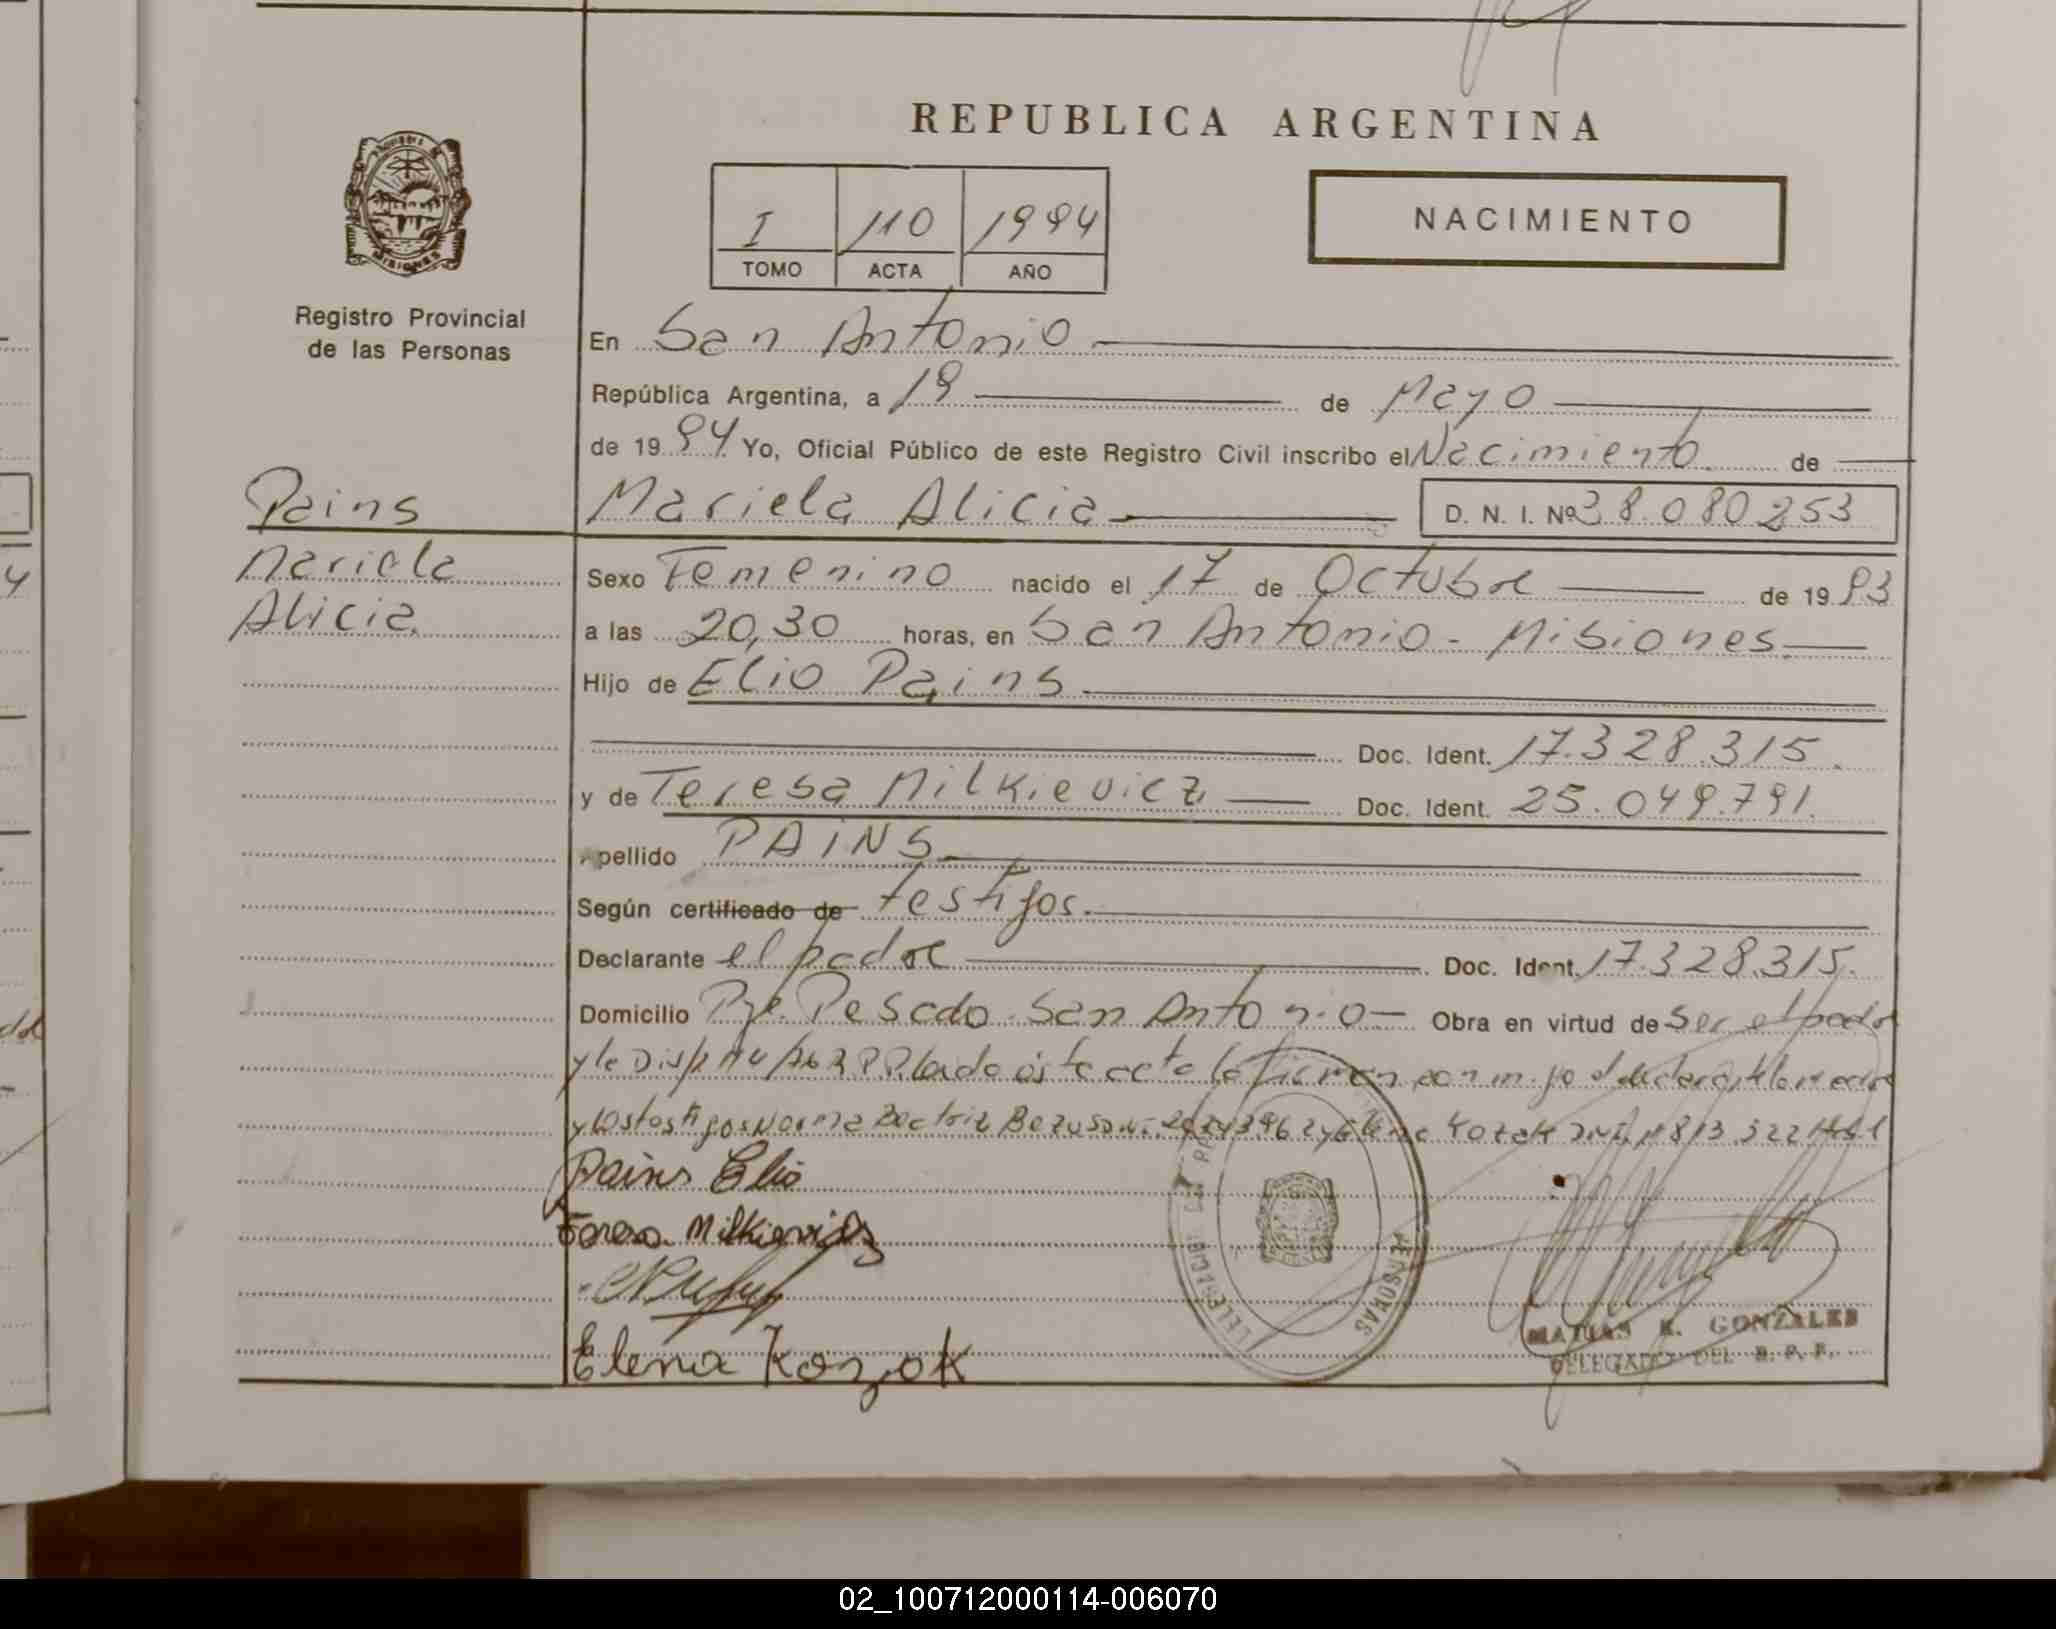 REPUBLICA ARGENTINA
I 110 1994
TOMO ACTA AÑO
NACIMIENTO
MISIONES
Registro Provincial
de las Personas
En San Antonio
República Argentina, a 19 de Mayo
de 1994 Yo, Oficial Público de este Registro Civil inscribo el Nacimiento de
Pains
Mariela Alicia D. N. I. Nº 38.080.253
Mariela
Alicia
Sexo Femenino nacido el 17 de Octubre de 1993
a las 20,30 horas, en San Antonio - Misiones
Hijo de Elio Pains
Doc. Ident. 17.328.315.
y de Teresa Milkievicz Doc. Ident. 25.049.791.
Apellido PAINS
Según certificado de testigos.
Declarante el padre Doc. Ident. 17.328.315.
Domicilio Pje. Pesado - San Antonio Obra en virtud de ser el padre
y la Disp. leida este acta la firman conmigo el declarante la madre
y los testigos Norma Beatriz y Elena Kozak
Pains Elio
Teresa Milkievicz
Elena Kozak
PERSONAS
MATIAS R. GONZALES
DELEGADO DEL R. P. P.
02_100712000114-006070